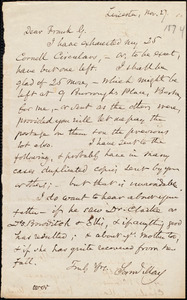 Leicester, Nov. 27
187
Dear Frank G.
I have exhausted my 25
Cornell Circulars, – or, to be exact,
have but one left. I should be
glad of 25 more, – which might be
left at 9 Burroughs Place, Boston
for me, – or sent as the others were,
provided you will let me pay the
postage on them now & on the previous
lot also. I have sent to the
following, & probably have in many
cases duplicated copies sent by your
or others; – but that is unavoidable
I do want to hear about your
father – if he saw Dr. Clarke or
Dr. Bowditch & Ellis, & if anything good
has resulted; – & about yr. mother too,
& if she has quite recovered from her
fall.
Truly Yrs.
Saml May
over